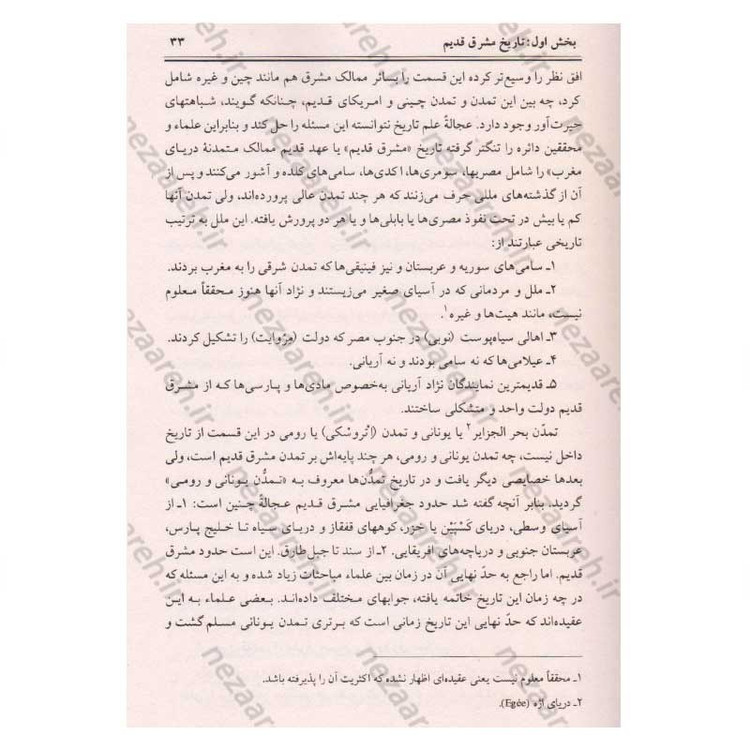 بخش اول: تاریخ مشرق قدیم ۳۳
افق نظر را وسیع‌تر کرده این قسمت را بسائر ممالک مشرق هم مانند چین و غیره شامل
کرد، چه بین این تمدن و تمدن چینی و امریکای قدیم، چنانکه گویند، شباهتهای
حیرت‌آور وجود دارد. عجالةً علم تاریخ نتوانسته این مسئله را حل کند و بنابراین علماء و
محققین دائره را تنگتر گرفته تاریخ «مشرق قدیم» یا عهد قدیم ممالک متمدنهٔ دریای
مغرب» را شامل مصریها، سومری‌ها، اکدی‌ها، سامی‌های کلده و آشور می‌کنند و پس از
آن از گذشته‌های مللی حرف می‌زنند که هر چند تمدن عالی پرورده‌اند، ولی تمدن آنها
کم یا بیش در تحت نفوذ مصری‌ها یا بابلی‌ها و یا هر دو پرورش یافته. این ملل به ترتیب
تاریخی عبارتند از:
۱ـ سامی‌های سوریه و عربستان و نیز فینیقی‌ها که تمدن شرقی را به مغرب بردند.
۲ـ ملل و مردمانی که در آسیای صغیر می‌زیستند و نژاد آنها هنوز محققاً معلوم
نیست، مانند هیت‌ها و غیره۱.
۳ـ اهالی سیاه‌پوست (نوبی) در جنوب مصر که دولت (مِرُوایت) را تشکیل کردند.
۴ـ عیلامی‌ها که نه سامی بودند و نه آریانی.
۵ـ قدیمترین نمایندگان نژاد آریانی به‌خصوص مادی‌ها و پارسی‌ها که از مشرق
قدیم دولت واحد و متشکلی ساختند.
تمدّن بحر الجزایر۲ یا یونانی و تمدن (اِتْروسْکی) یا رومی در این قسمت از تاریخ
داخل نیست، چه تمدن یونانی و رومی، هر چند پایه‌اش بر تمدن مشرق قدیم است، ولی
بعدها خصایصی دیگر یافت و در تاریخ تمدّن‌ها معروف به «تمدُّن یونانی و رومی»
گردید. بنابر آنچه گفته شد حدود جغرافیایی مشرق قدیم عجالةً چنین است: ۱ـ از
آسیای وسطی، دریای کَسْپیَن یا خزر، کوههای قفقاز و دریای سیاه تا خلیج پارس،
عربستان جنوبی و دریاچه‌های افریقایی. ۲ـ از سند تا جبل طارق. این است حدود مشرق
قدیم. اما راجع به حدّ نهایی آن در زمان بین علماء مباحثات زیاد شده و به این مسئله که
در چه زمان این تاریخ خاتمه یافته، جوابهای مختلف داده‌اند. بعضی علماء به این
عقیده‌اند که حدّ نهایی این تاریخ زمانی است که برتری تمدن یونانی مسلم گشت و
۱ـ محققاً معلوم نیست یعنی عقیده‌ای اظهار نشده که اکثریت آن را پذیرفته باشد.
۲ـ دریای اژه (Egée).
nezaareh.ir